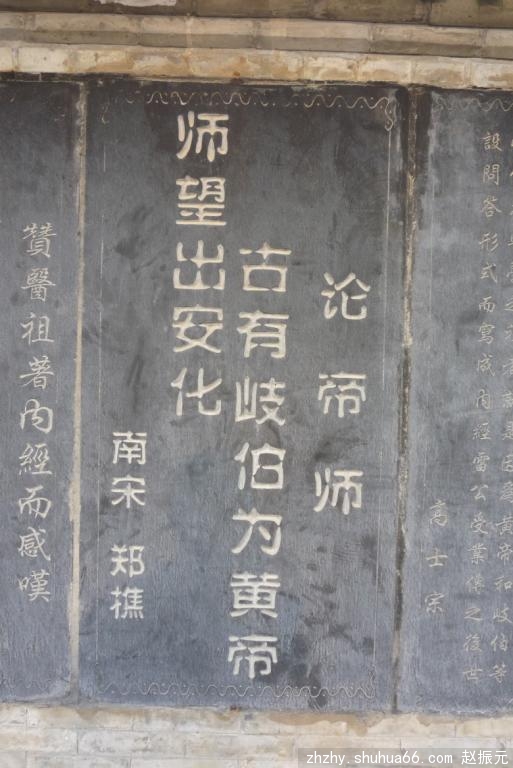 設問答形式而寫成内經雷公受業傳之後世
高士宗
论帝师
古有岐伯为黄帝
师望出安化
南宋 郑樵
贊醫祖著内經而感嘆
zhzhy.shuhua66.com 赵振元